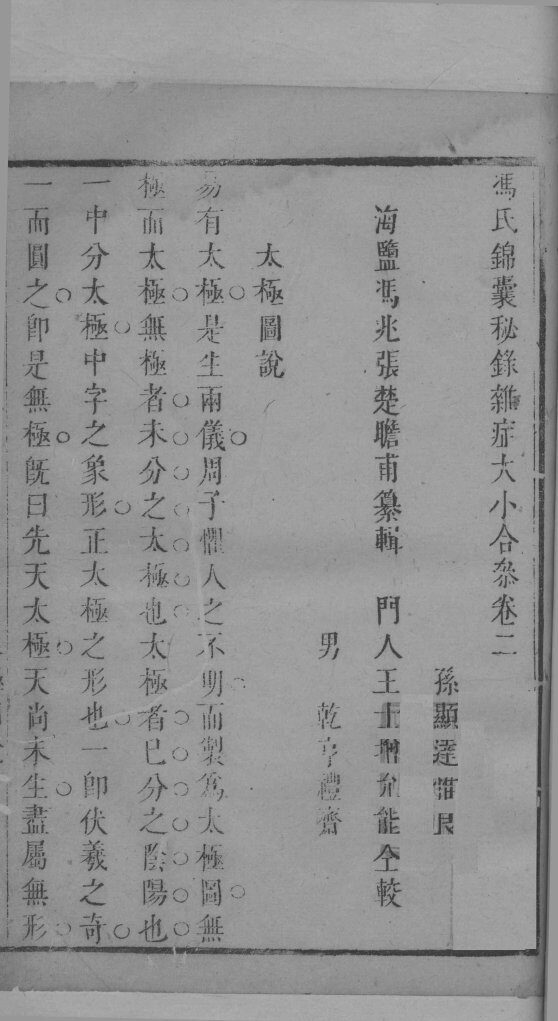 馮氏錦囊秘錄雜症大小合叅卷二
孫顯達
海鹽馮兆張楚瞻甫纂輯 門人王士增允能仝較
男 乾亨禮齋
太極圖說
易有太極是生兩儀周子懼人之不明而製爲太極圖無
極而太極無極者未分之太極也太極者已分之陰陽也
一中分太極中字之象形正太極之形也一卽伏羲之奇
一而圓之卽是無極旣曰先天太極天尚未生盡屬無形